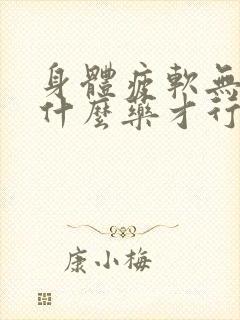 身體疲軟無
什麼藥才行
康小梅